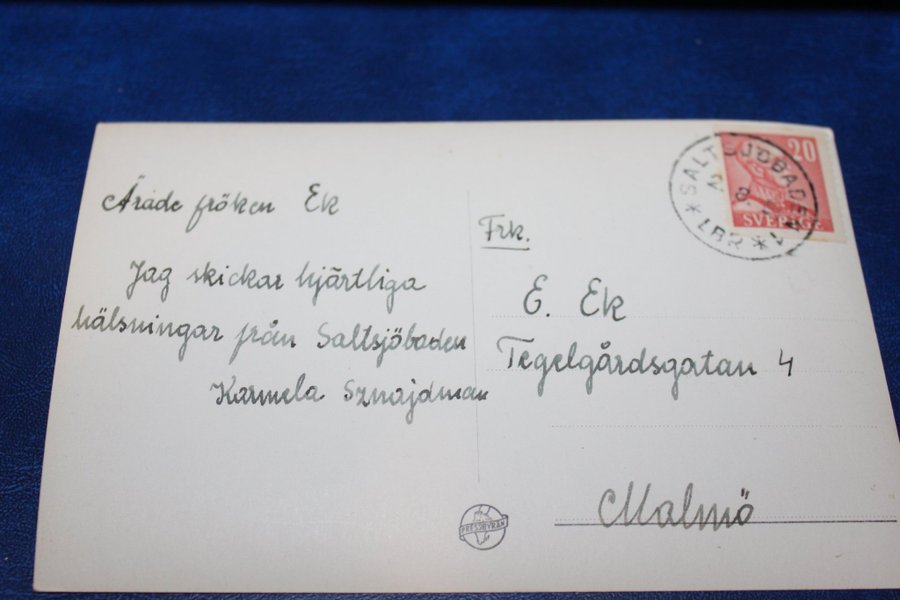 Ärade fröken Ek
Jag skickar hjärtliga
hälsningar från Saltsjöbaden
Karmela Sznajdman
Frk.
E. Ek
Tegelgårdsgatan 4
Malmö
20
SVERIGE
SALTSJÖBADEN
PRESSBYRÅN